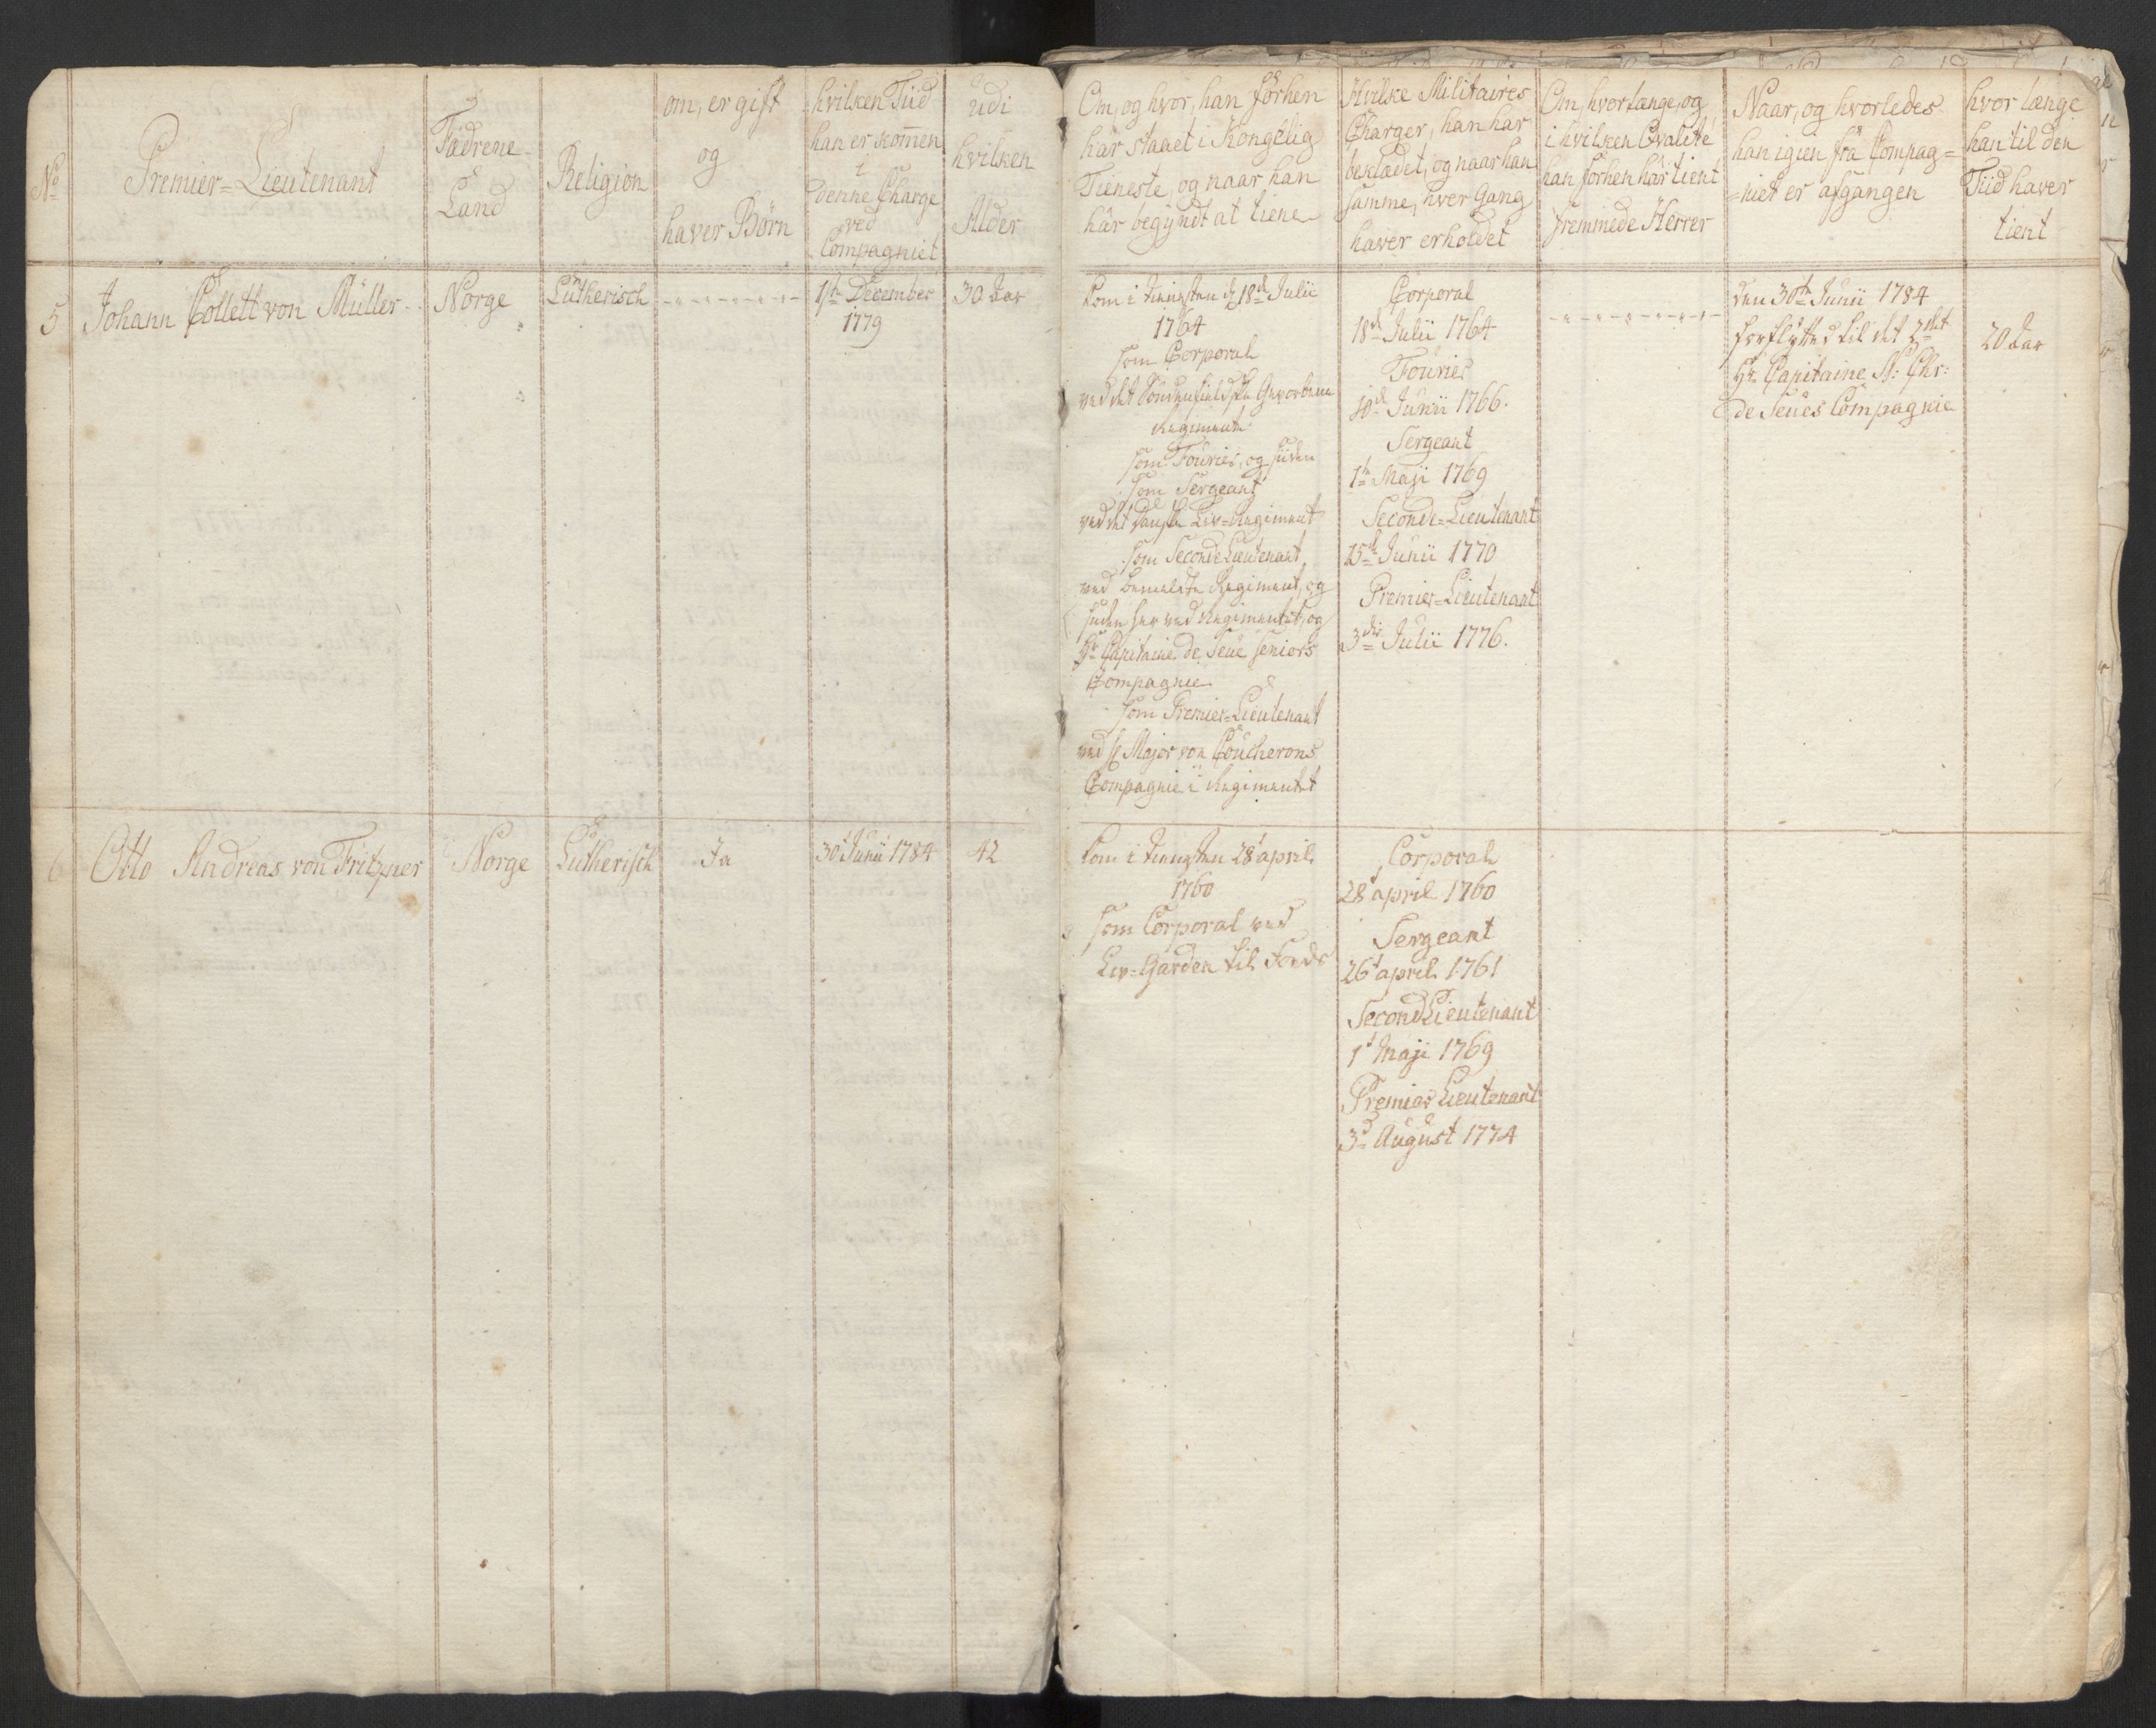 No
Premier=Lieutenant
Fædrene
Land
Religion
om, er gift
og
haver Børn
hvilken Tiid
han er kom̄en
i
denne Charge
ved
Compagniet
udi
hvilken
Alder
Om, og hvor, han forhen
har staaet i Kongelig
Tieneste, og naar han
har begyndt at tiene
Hvilke Militaires
Charger, han har
beklædet, og naar han
samme, hver Gang
haver erholdet
Om, hvorlænge, og
i hvilken Qvalité
han forhen har tient
fremmede Herrer
Naar, og hvorledes
han igien fra Compag=
=niet er afgangen
hvor længe
han til den
Tiid haver
tient
5
Johann Collett von Müller
Norge
Lutherisch
1ste December
1779
30 Aar
kom i tienesten d 18de Julii
1764
som Corporal
ved det Søndenfieldske Gevorbene
Regiment
som Fourier, og siden
som Sergeant
ved det Danske Liv=Regiment
som Seconde Lieutenant
ved bemelte Regiment, og
siden her ved Regimentet, og
Hr Capitaine de Seue Seniors
Compagnie
som Premier=Lieutenant
ved Hr Major von Coucherons
Compagnie i Regimentet
Corporal
18de Julii 1764
Fourier
10de Junii 1766.
Sergeant
1te Maji 1769
Seconde=Lieutenant
25de Junii 1770
Premier=Lieutenant
3die Julii 1776.
den 30te Junii 1784
forflyttet til det 2det
Hr Capitaine N: Chr:
de Seues Compagnie
20 Aar
6
Otto Andreas von Fritzner
Norge
Lutherisch
Ja
30t Junii 1784
42
kom i tienesten 28t april
1760
som Corporal ved
Liv=Garden til Fods
Corporal
28t april 1760
Sergeant
26t april 1761
Second Lieutenant
1t Maji 1769
Premier Lieutenant
3d August 1774